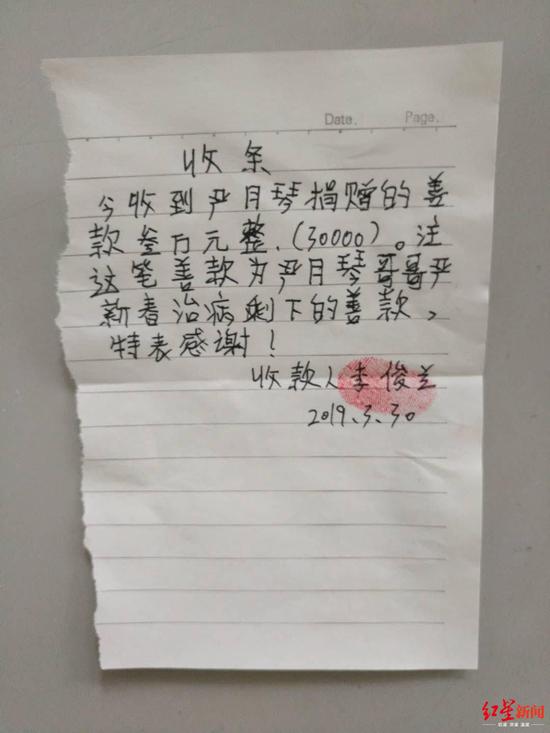 Date. Page.
收条
今收到严月琴捐赠的善
款叁万元整.(30000)。注
这笔善款为严月琴哥哥严
新春治病剩下的善款,
特表感谢!
收款人李俊兰
2019.3.30
红星新闻